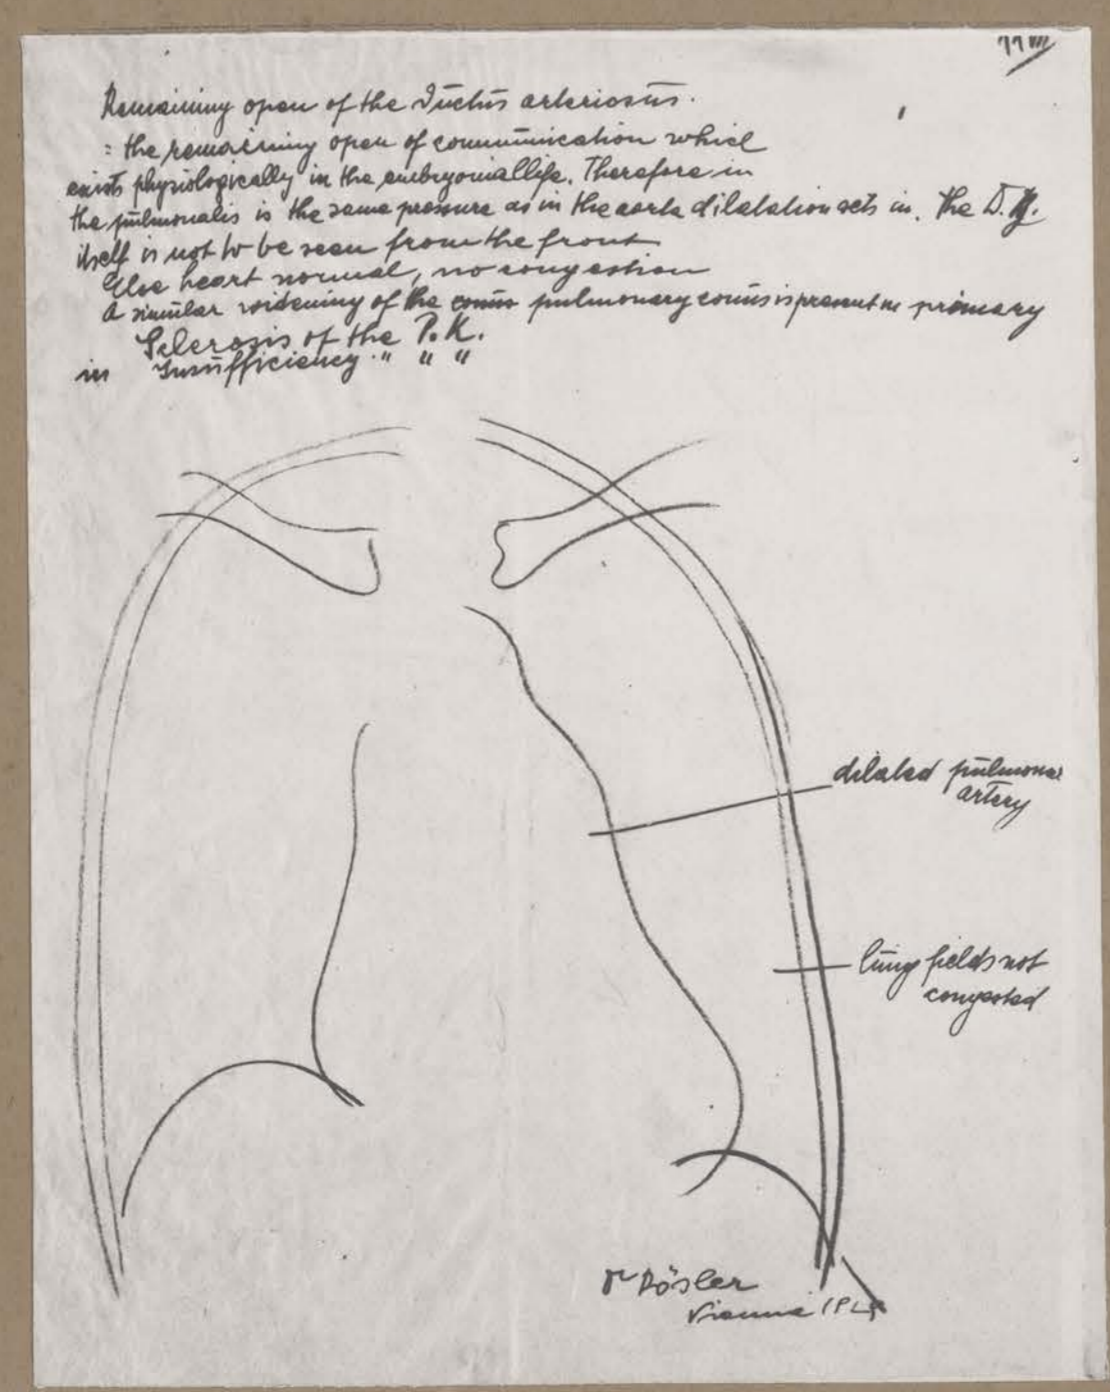 Remaining open of the Ductus arteriosus.
: the remaining open of communication which
exists physiologically in the embryonallife. Therefore in
the pulmonalis is the same pressure as in the aorta dilatation sets in. the D.
itself is not to be seen from the front
Else heart normal, no congestion
A similar widening of the conus pulmonary conus is present in primary
Sclerosis of the P.K.
in Insufficiency " " "
dilated pulmonar
artery
lung fields not
congested
Dr Rösler
Vienna